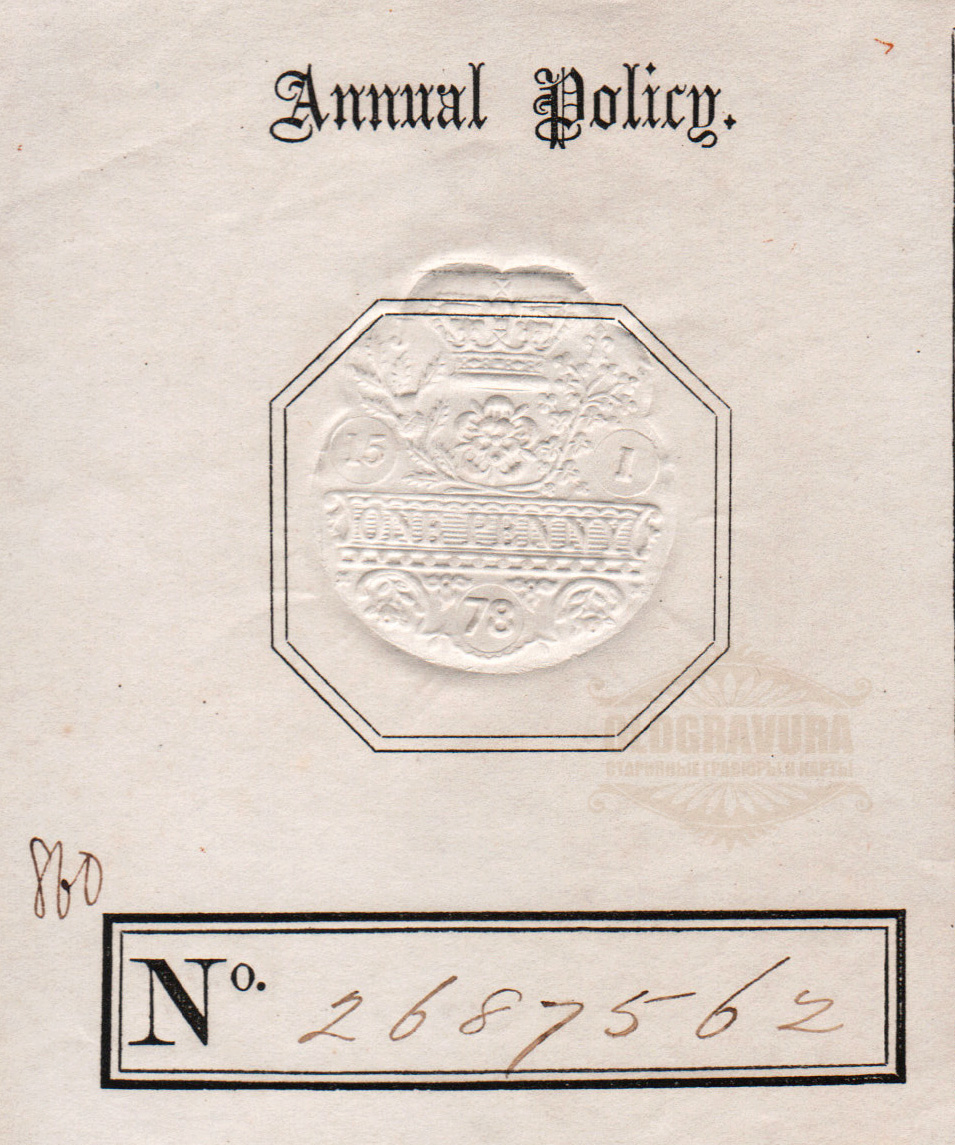 Annual Policy.
15
1
ONE PENNY
78
OLDGRAVURA
СТАРИННЫЕ ГРАВЮРЫ И КАРТЫ
860
No. 2687562